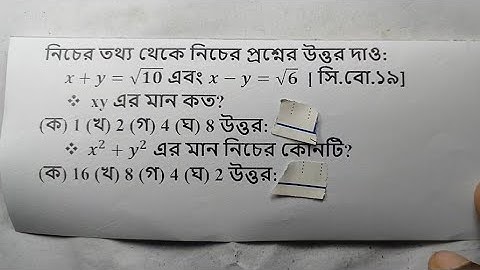 নিচের তথ্য থেকে নিচের প্রশ্নের উত্তর দাও:
x + y = √10 এবং x − y = √6 [ সি.বো.১৯]
❖ xy এর মান কত?
(ক) 1 (খ) 2 (গ) 4 (ঘ) 8 উত্তর:
❖ x² + y² এর মান নিচের কোনটি?
(ক) 16 (খ) 8 (গ) 4 (ঘ) 2 উত্তর: